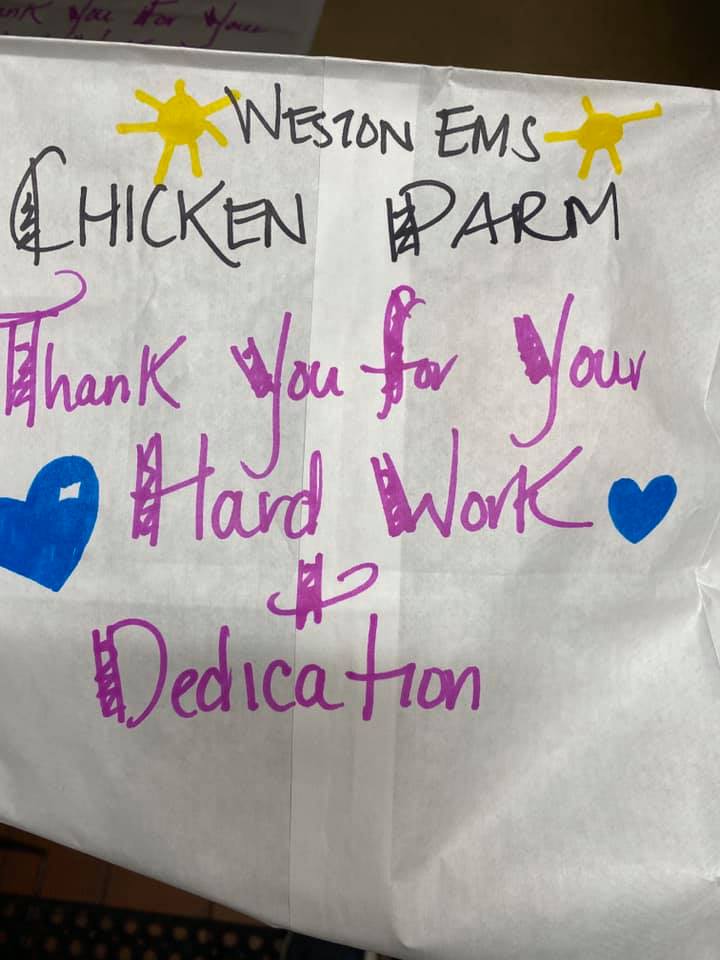 ank You For Your
WESTON EMS
CHICKEN PARM
Thank You for Your
Hard Work
&
Dedication